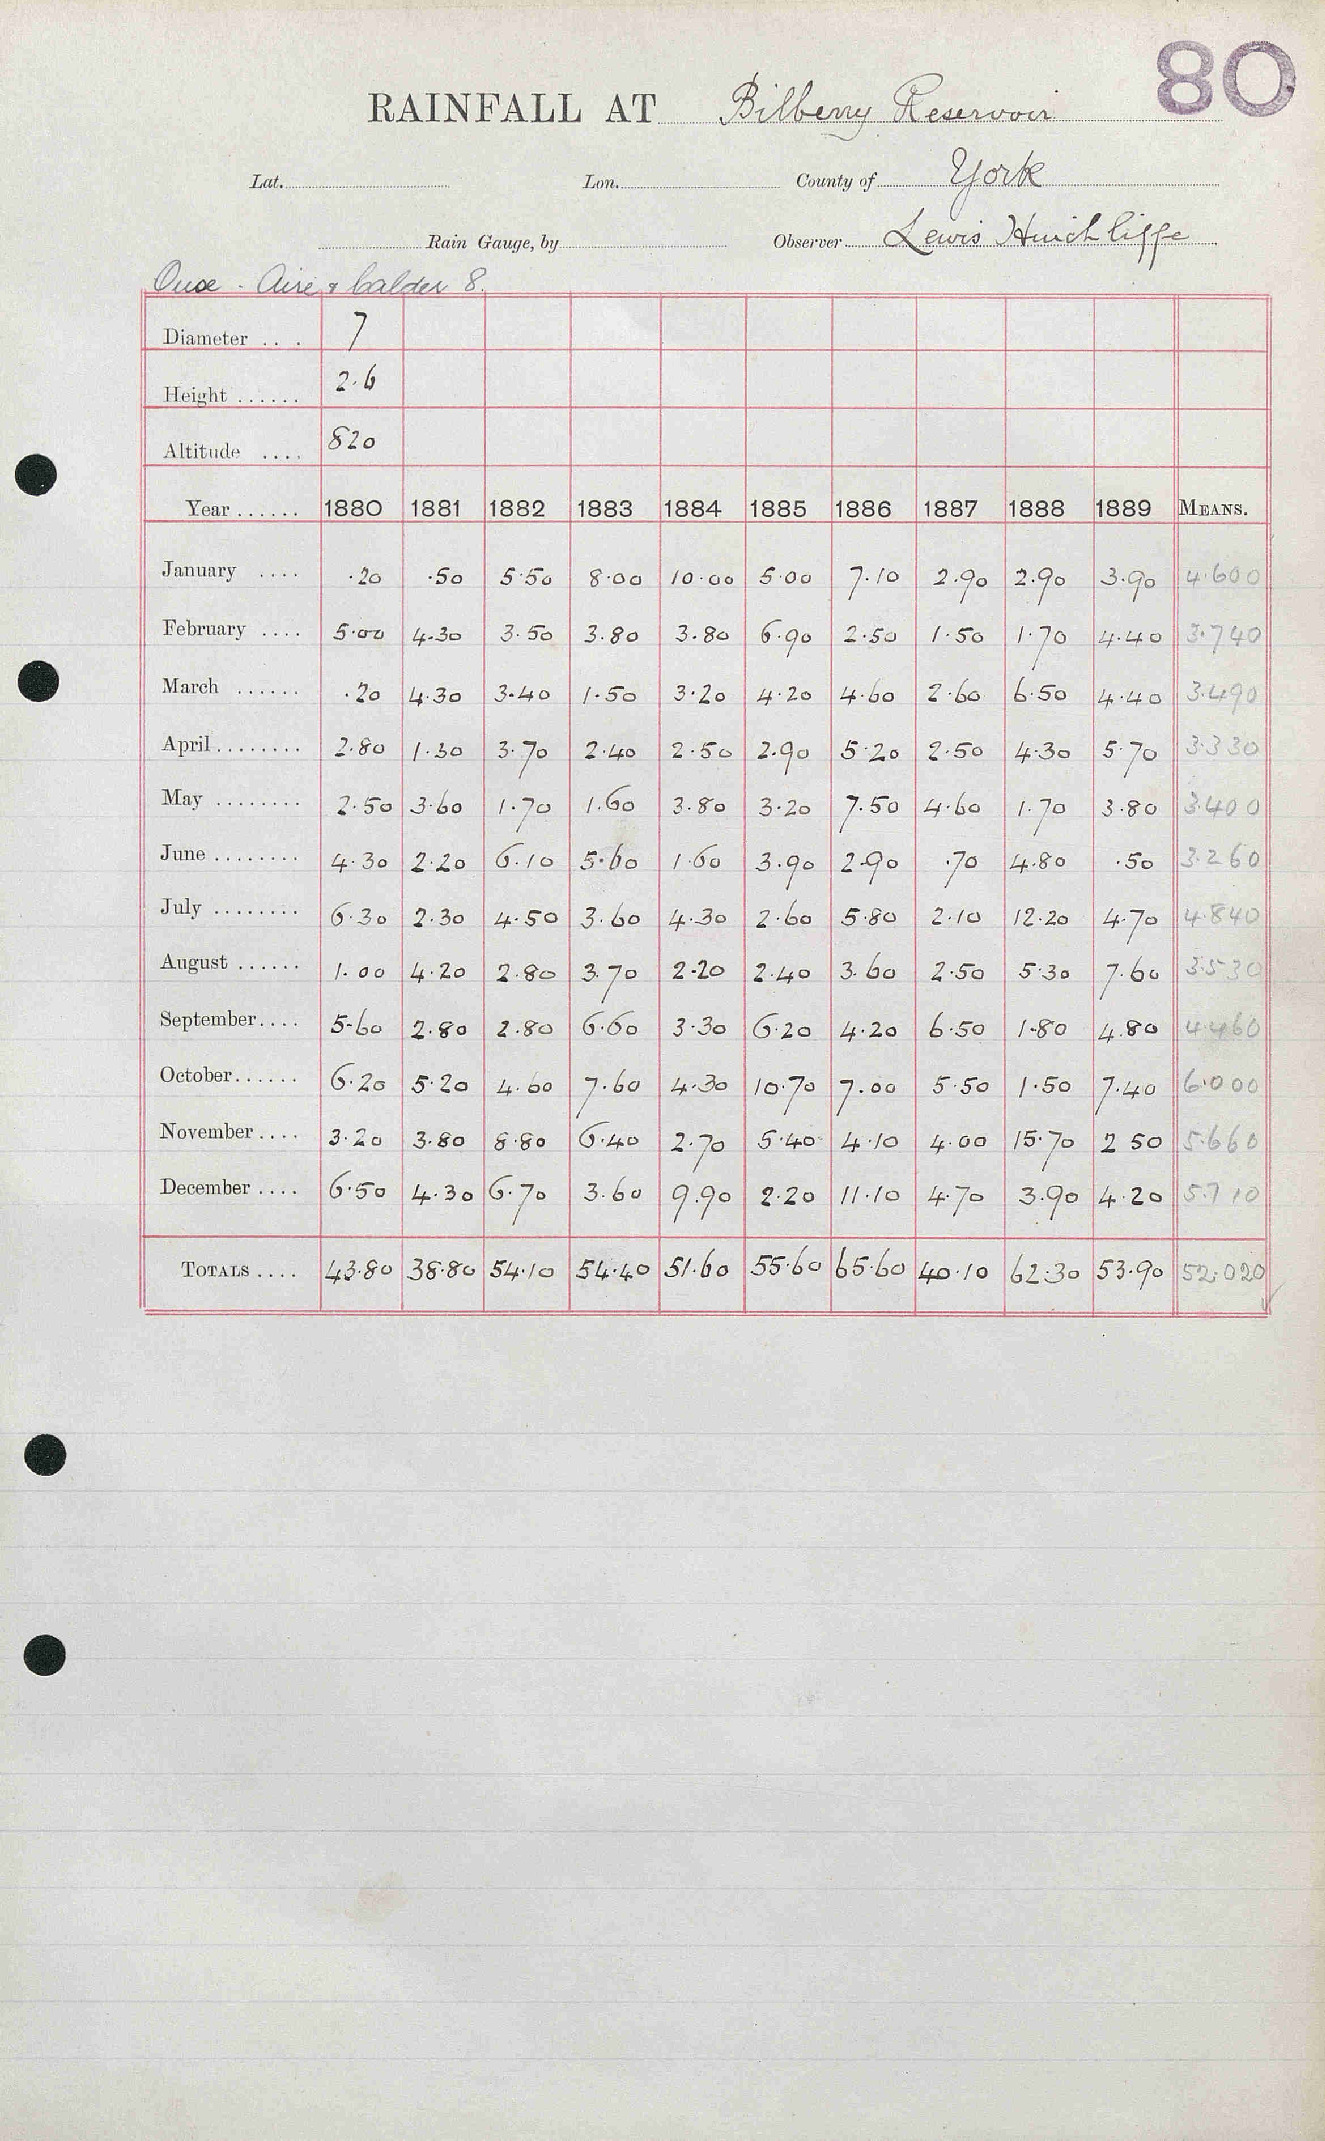 80
RAINFALL AT Bilberry Reservoir
Lat. Lon. County of York
Rain Gauge, by Observer Lewis Hinchliffe
Ouse - Aire & Calder 8.
Diameter . . . 7
Height . . . . . . 2.6
Altitude . . . . 820
Year . . . . . . 1880 1881 1882 1883 1884 1885 1886 1887 1888 1889 MEANS.
January . . . . .20 .50 5.50 8.00 10.00 5.00 7.10 2.90 2.90 3.90 4.600
February . . . . 5.00 4.30 3.50 3.80 3.80 6.90 2.50 1.50 1.70 4.40 3.740
March . . . . . . .20 4.30 3.40 1.50 3.20 4.20 4.60 2.60 6.50 4.40 3.490
April . . . . . . . . 2.80 1.30 3.70 2.40 2.50 2.90 5.20 2.50 4.30 5.70 3.330
May . . . . . . . . 2.50 3.60 1.70 1.60 3.80 3.20 7.50 4.60 1.70 3.80 3.400
June . . . . . . . . 4.30 2.20 6.10 5.60 1.60 3.90 2.90 .70 4.80 .50 3.260
July . . . . . . . . 6.30 2.30 4.50 3.60 4.30 2.60 5.80 2.10 12.20 4.70 4.840
August . . . . . . 1.00 4.20 2.80 3.70 2.20 2.40 3.60 2.50 5.30 7.60 3.530
September . . . . 5.60 2.80 2.80 6.60 3.30 6.20 4.20 6.50 1.80 4.80 4.460
October . . . . . . 6.20 5.20 4.60 7.60 4.30 10.70 7.00 5.50 1.50 7.40 6.000
November . . . . 3.20 3.80 8.80 6.40 2.70 5.40 4.10 4.00 15.70 2 50 5.660
December . . . . 6.50 4.30 6.70 3.60 9.90 2.20 11.10 4.70 3.90 4.20 5.710
TOTALS . . . . 43.80 38.80 54.10 54.40 51.60 55.60 65.60 40.10 62.30 53.90 52.020